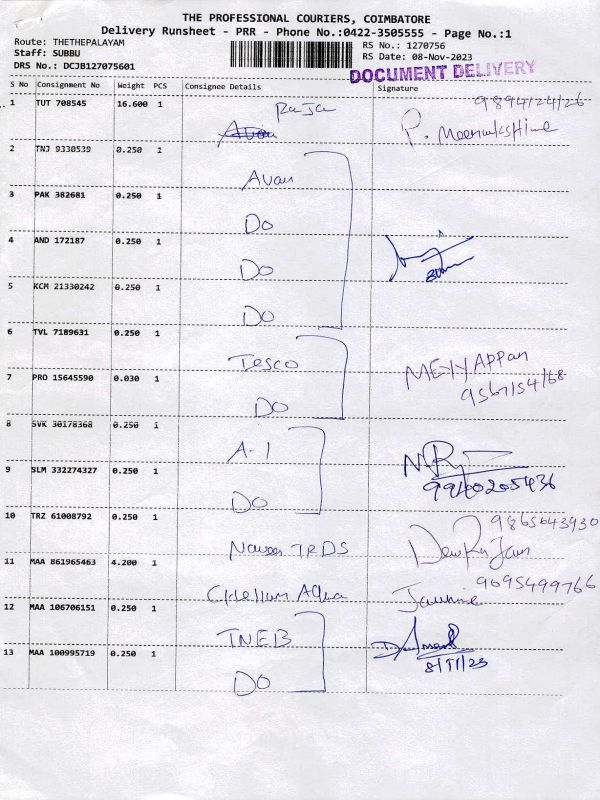 THE PROFESSIONAL COURIERS, COIMBATORE
Delivery Runsheet - PRR - Phone No.:0422-3505555 - Page No.:1
Route: THETHEPALAYAM
Staff: SUBBU
DRS No.: DCJB127075601
RS No.: 1270756
RS Date: 08-Nov-2023
DOCUMENT DELIVERY
S No Consignment No Weight PCS Consignee Details Signature
1 TUT 708545 16.600 1 Raja P. Meenakshime
2 TNJ 9330539 0.250 1 Avan
3 PAK 382681 0.250 1 Do
4 AND 172187 0.250 1 Do
5 KCM 21330242 0.250 1 Do
6 TVL 7189631 0.250 1 Tesco MEYYAPPan
7 PRO 15645590 0.030 1 Do
8 SVK 30178368 0.250 1 A-1
9 SLM 332274327 0.250 1 Do 9940205436
10 TRZ 61008792 0.250 1 Naveen TRDS 9865643930
11 MAA 861965463 4.200 1 Aqua 9695499766
12 MAA 106706151 0.250 1 TNEB
13 MAA 100995719 0.250 1 Do 8/11/23